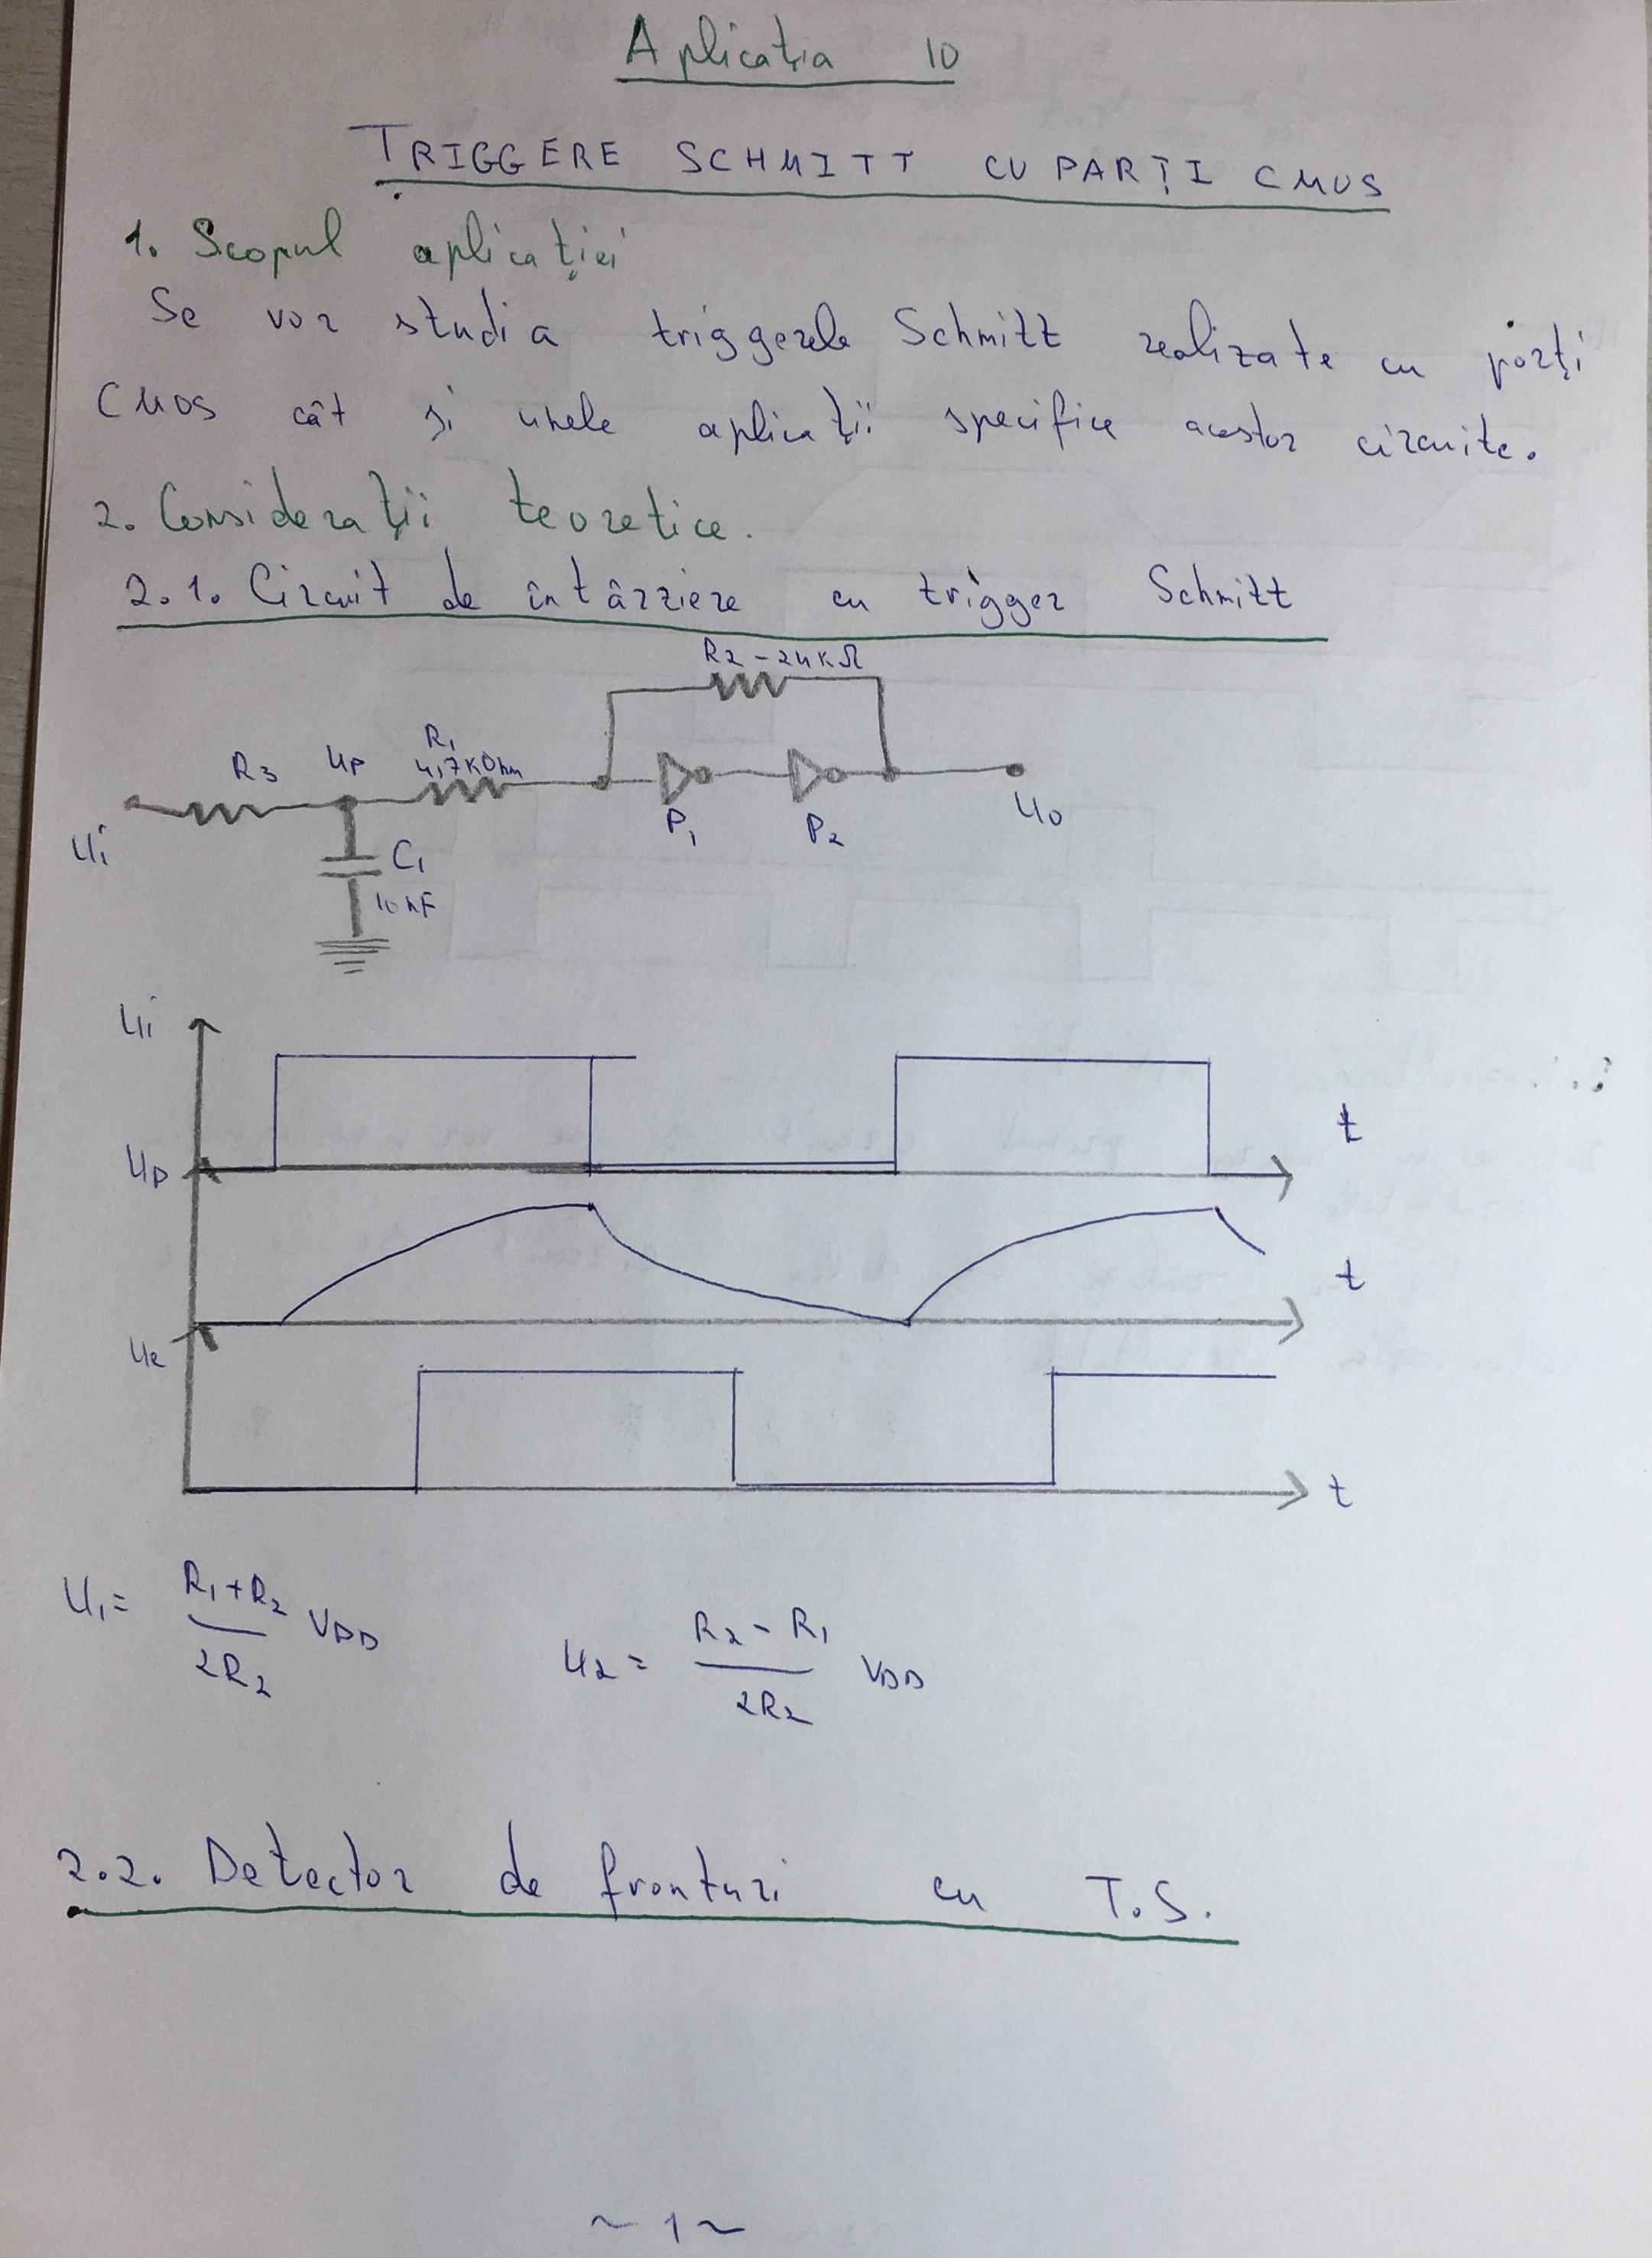 Aplicația 10
TRIGGERE SCHMITT CU PARȚI CMOS
1. Scopul aplicației
Se vor studia triggerele Schmitt realizate cu porți
CMOS cât și unele aplicații specifice acestor circuite.
2. Considerații teoretice.
2.1. Circuit de întârziere cu trigger Schmitt
R2 - 24KΩ
R3 Up R1
4,7KOhm
P1 P2
Ui U0
C1
10nF
Ui
t
Up
t
Ue
t
U1 = R1+R2 / 2R2 VDD
U2 = R2 - R1 / 2R2 VDD
2.2. Detector de fronturi cu T.S.
~ 1 ~